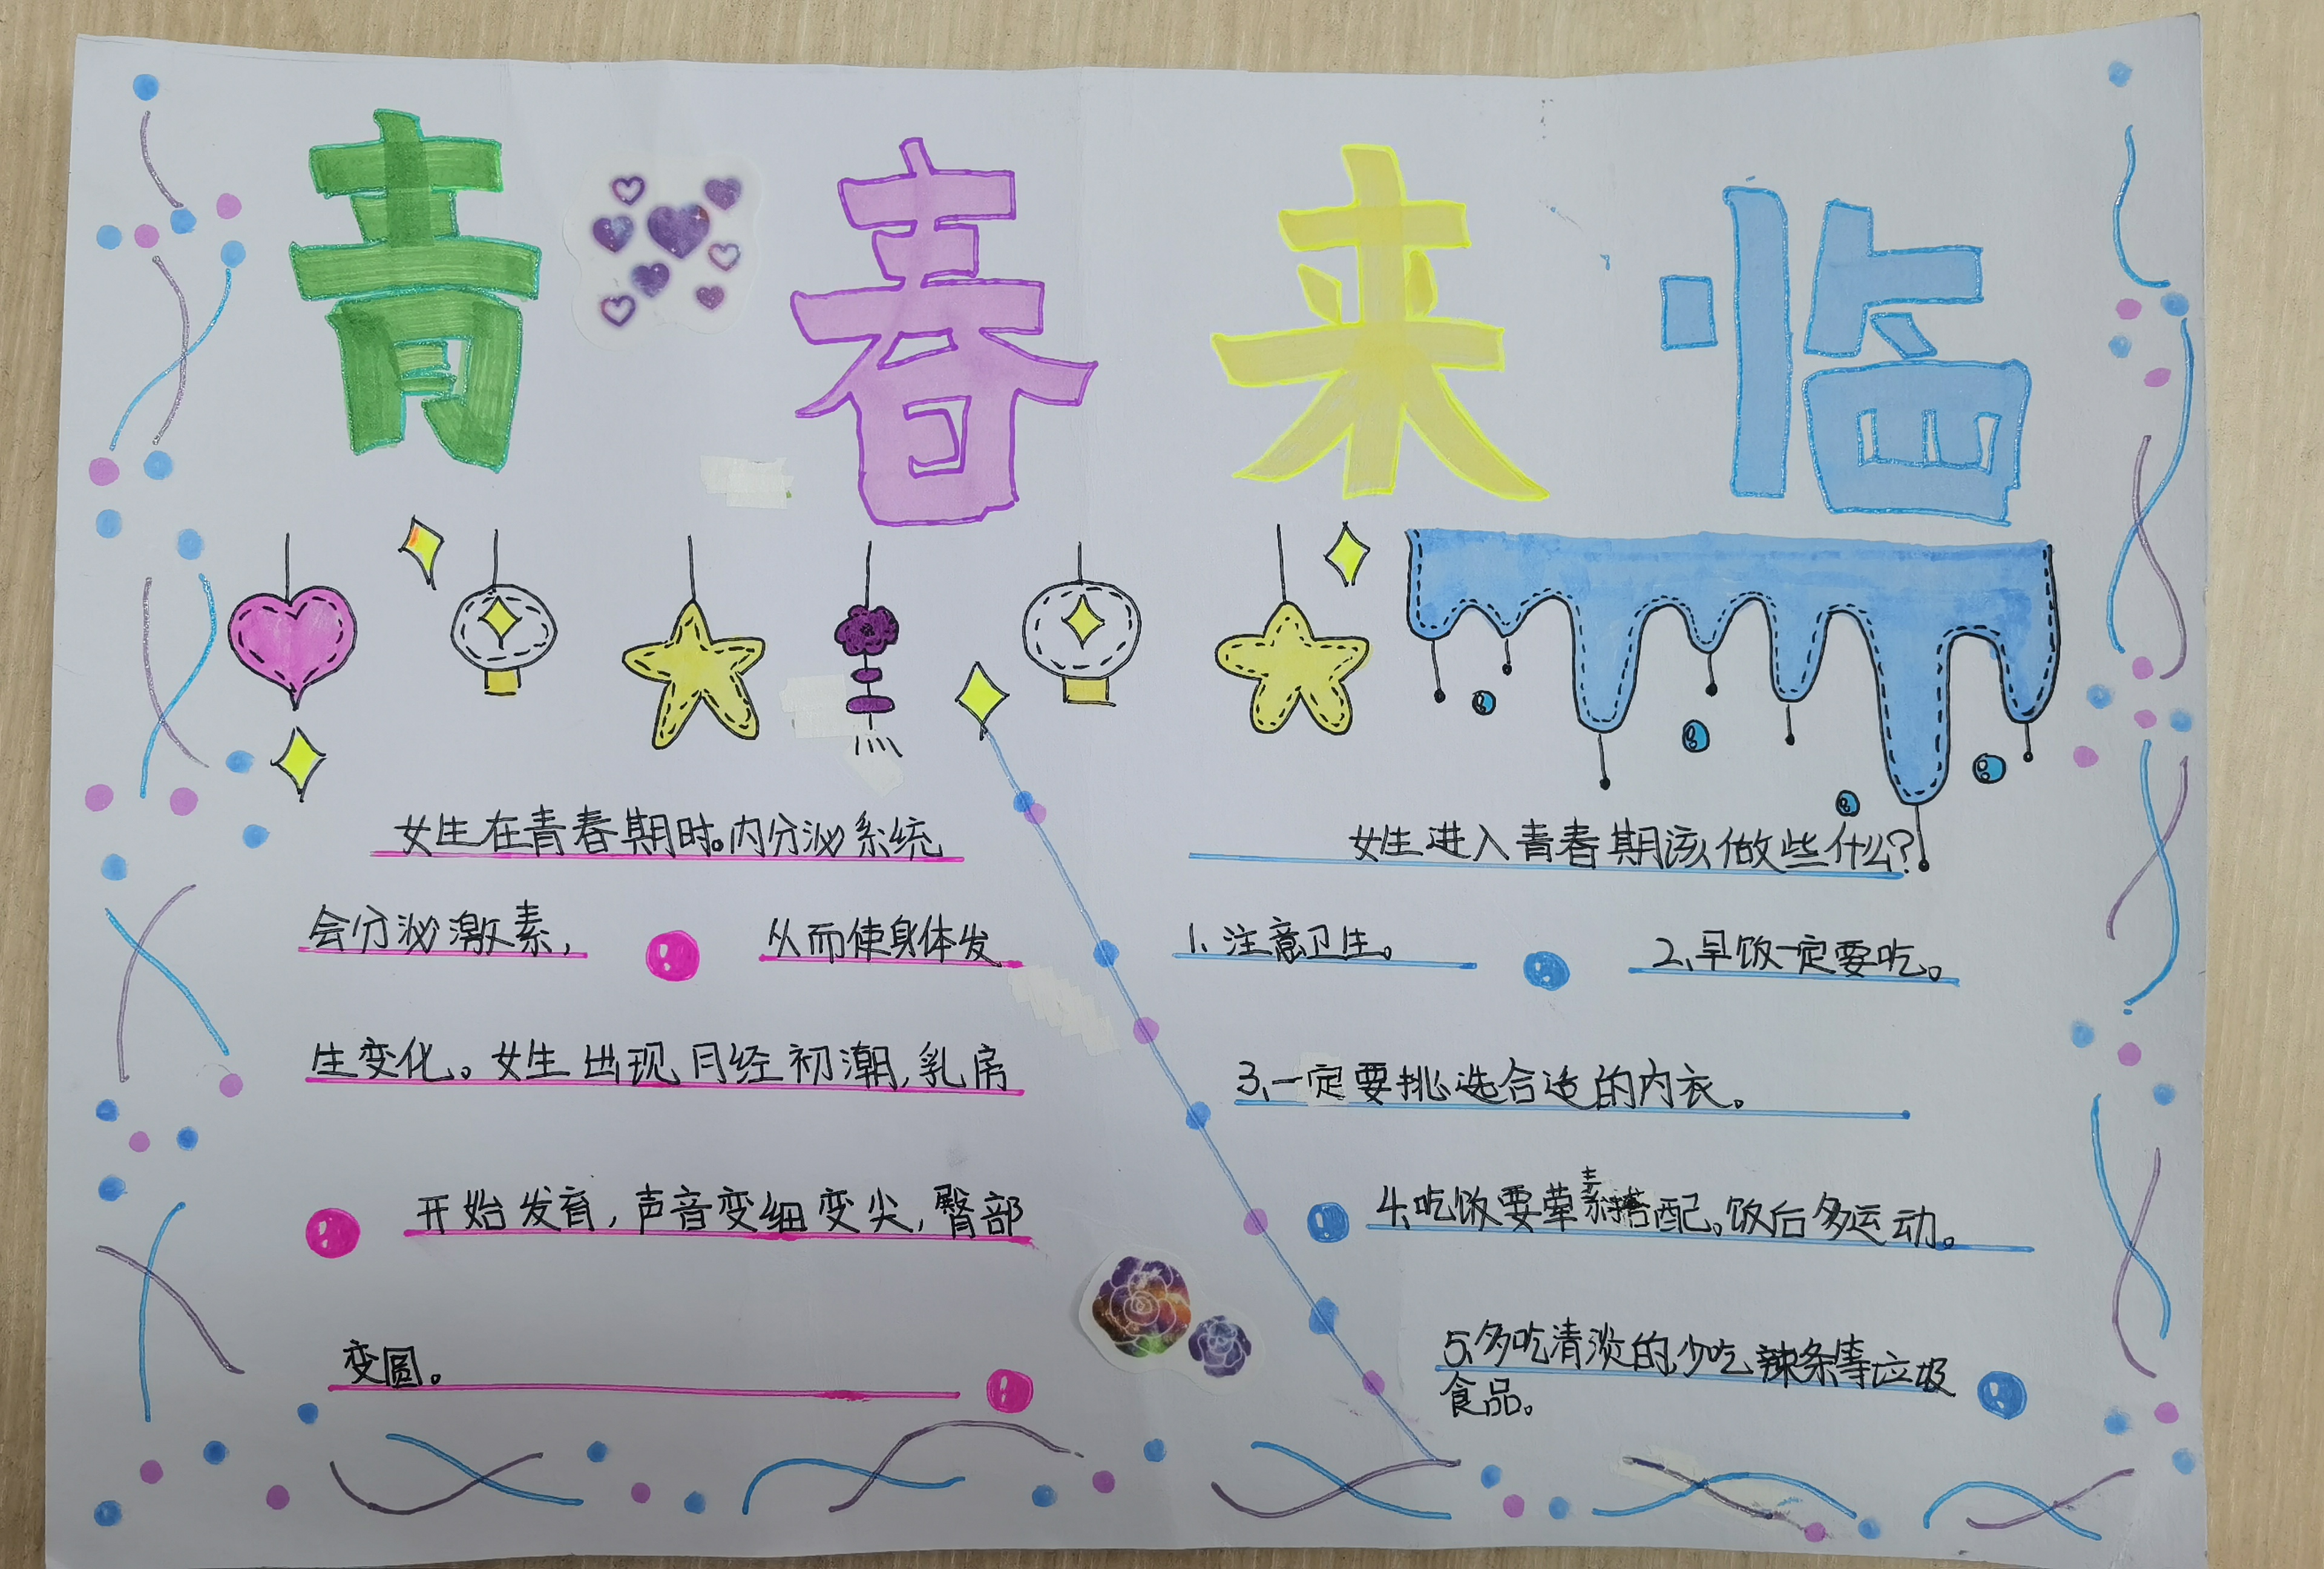 青春来临
女生在青春期时。内分泌系统
会分泌激素,
从而使身体发
生变化。女生出现月经初潮,乳房
开始发育,声音变细变尖,臀部
变圆。
女生进入青春期该做些什么?
1、注意卫生。
2、早饭一定要吃。
3、一定要挑选合适的内衣。
4、吃饭要荤素搭配。饭后多运动。
5、多吃清淡的,少吃辣条等垃圾
食品。